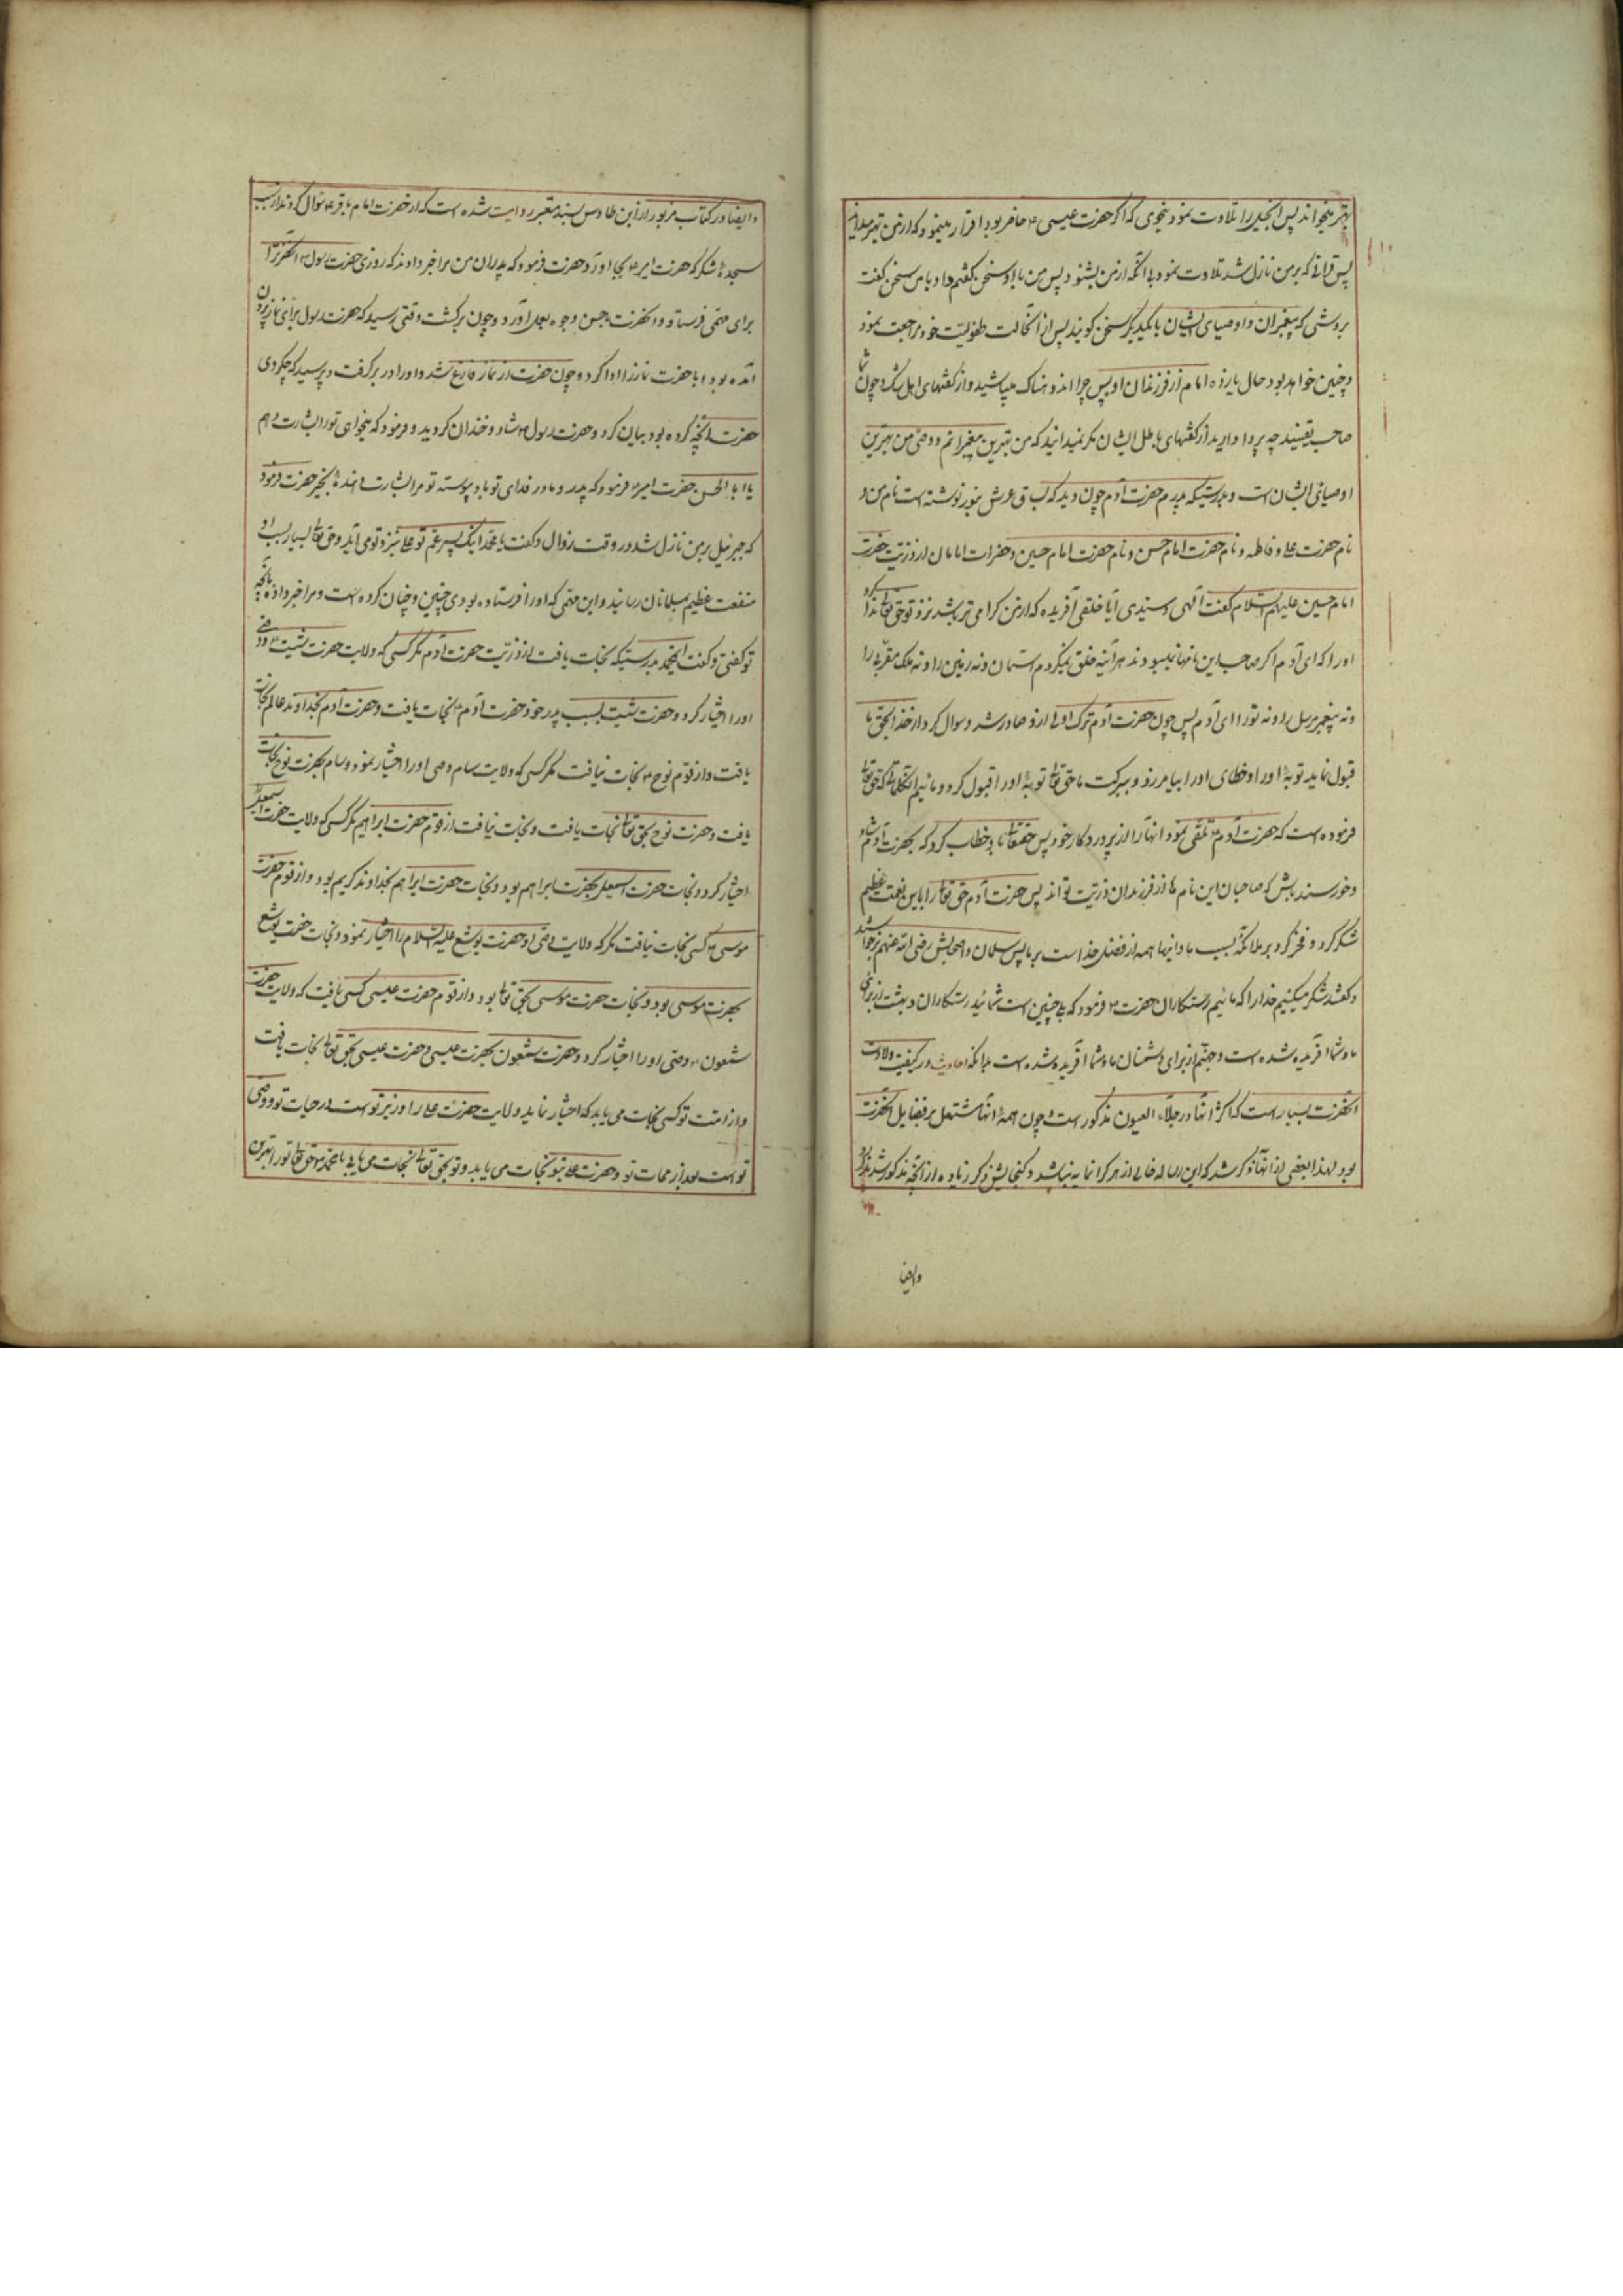 بهتر میخواند پس انجیل را تلاوت نمود بنحوی که اگر حضرت عیسی ع حاضر بود اقرار مینمود که از من بهتر میداند
پس قرانی که بر من نازل شد تلاوت نمود بی انکه از من بشنود پس من با او سخن گفتم و او با من سخن گفت
بروشی که پیغمبران و اوصیای ایشان با یکدیگر سخن گویند پس از انحالت طفولیت خود مراجعت نمود
و چنین خواهد بود حال یازده امام از فرزندان او پس چرا اندوهناک میباشید و از گفتهای اهل شک و چون شما
صاحب یقینید چه پروا دارید از گفتهای باطل ایشان مگر نمیدانید که من بهترین پیغمبرانم و وصی من بهترین
اوصیای ایشان است و بدرستیکه پدرم حضرت آدم چون دید که بساق عرش بنور نوشته است نام من و
نام حضرت علی و فاطمه و نام حضرت امام حسن و نام حضرت امام حسین و حضرات امامان از ذریت حضرت
امام حسین علیهم السلام گفت الهی و سیدی آیا خلقی آفریده که از من گرامی تر باشد نزد تو حق تعالی ندا کرد
او را که ای آدم اگر صاحب این نامها نمیبودند هر آینه خلق نمیکردم اسمان و نه زمین را و نه ملک مقرب را
و نه پیغمبر مرسل را و نه تو را ای آدم پس چون حضرت آدم ترک اولی ازو صادر شد و سوال کرد از خدا بحق ما
قبول نماید توبهٔ او را و خطای او را بیامرزد و ببرکت ما حق تعالی توبهٔ او را قبول کرد و مائیم انکلماتی که حق تعالی
فرموده است که حضرت آدم ع تلقی نمود انها را از پروردگار خود پس حقتعالی باو خطاب کرد که حضرت آدم شاد
و خورسند باش که صاحبان این نام ها از فرزندان و ذریت تو اند پس حضرت آدم حق تعالی را باین نعمت عظیم
شکر کرد و فخر کرد بر ملائکه بسبب ما و اینها همه از فضل خداست بر ما پس سلمان و اصحابش رضی الله عنهم برخواستند
و گفتند شکر میکنیم خدا را که مائیم رستگاران حضرت ص فرمود که بلی چنین است شمائید رستگاران و بهشت از برای
ما و شما افریده شده است و جهنم از برای دشمنان ما و شما افریده شده است بدانکه احادیث در کیفیت ولادت
انحضرت بسیار است که اکثر انها در جلاء العیون مذکور است و چون همهٔ انها مشتمل بر فضایل انحضرت
بود لهذا بعضی از انها ذکر شد که این رساله خالی از هر کرانمایه نباشد و گنجایش ذکر زیاده از انچه مذکور شد ندارد
وایضا
وایضا در کتاب مزبور از ابن طاوس بسند معتبر روایت شده است که از حضرت امام باقر ع سوال کردند از سبب
سجدهٔ شکر که حضرت امیر ع بجا اورد حضرت فرمود که پدران من مرا خبر دادند که روزی حضرت رسول ص انحضرترا
برای مهمی فرستاد و انحضرت باحسن وجوه بعمل آورد و چون برگشت وقتی رسید که حضرت رسول برای نماز بیرون
آمده بود و با حضرت نماز را ادا کرد و چون حضرت از نماز فارغ شد او را در بر گرفت و پرسید که چکردی
حضرت انچه کرده بود بیان کرد و حضرت رسول ص شاد و خندان گردید و فرمود که میخواهی تو را بشارت دهم
یا ابا الحسن حضرت امیر ع فرمود که پدر و مادر فدای تو باد پیوسته تو مرا بشارت دهندهٔ بخیر حضرت فرمود
که جبرئیل بر من نازل شد در وقت زوال و گفت یا محمد اینک پسر عم تو علی نزد تو می آید و حق تعالی بسبب او
منفعت عظیم بمسلمانان رسانید و این مهمی که او را فرستاده بودی چنین و چنان کرده است و مرا خبر داد بانچه
تو گفتی و گفت ایمحمد بدرستیکه نجات یافت از ذریت حضرت آدم مگر کسی که ولایت حضرت شیث ع وصی
او را اختیار کرد و حضرت شیث بسبب پدر خود حضرت آدم ع نجات یافت و حضرت آدم بخداوند عالم نجات
یافت و از قوم نوح ع نجات نیافت مگر کسی که ولایت سام وصی او را اختیار نمود و سام بحضرت نوح نجات
یافت و حضرت نوح بحق تعالی نجات یافت و نجات نیافت از قوم حضرت ابراهیم مگر کسی که ولایت حضرت اسمعیل
اختیار کرد و نجات حضرت اسمعیل بحضرت ابراهیم بود و نجات حضرت ابراهیم بخداوند کریم بود و از قوم حضرت
موسی ع کسی نجات نیافت مگر که ولایت وصی او حضرت یوشع علیه السلام را اختیار نمود و نجات حضرت یوشع
بحضرت موسی بود و نجات حضرت موسی بحق تعالی بود و از قوم حضرت عیسی کسی یافت که ولایت حضرت
شمعون ع وصی او را اختیار کرد و حضرت شمعون بحضرت عیسی و حضرت عیسی بحق تعالی نجات یافت
و از امت تو کسی نجات می یابد که اختیار نماید ولایت حضرت علی را وزیر تو است در حیات تو و وصی
تو است بعد از ممات تو و حضرت علی بتو نجات می یابد و تو بحق تعالی نجات می یابی یا محمد ص حق تعالی تو را بهترین